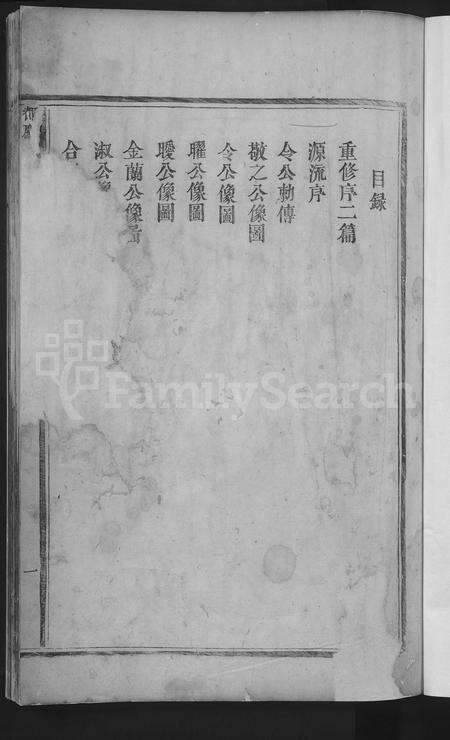 目録
重修序二篇
源流序
令公勅傳
敬之公像圖
令公像圖
曜公像圖
曖公像圖
金蘭公像啚
淑公
合
一
FamilySearch